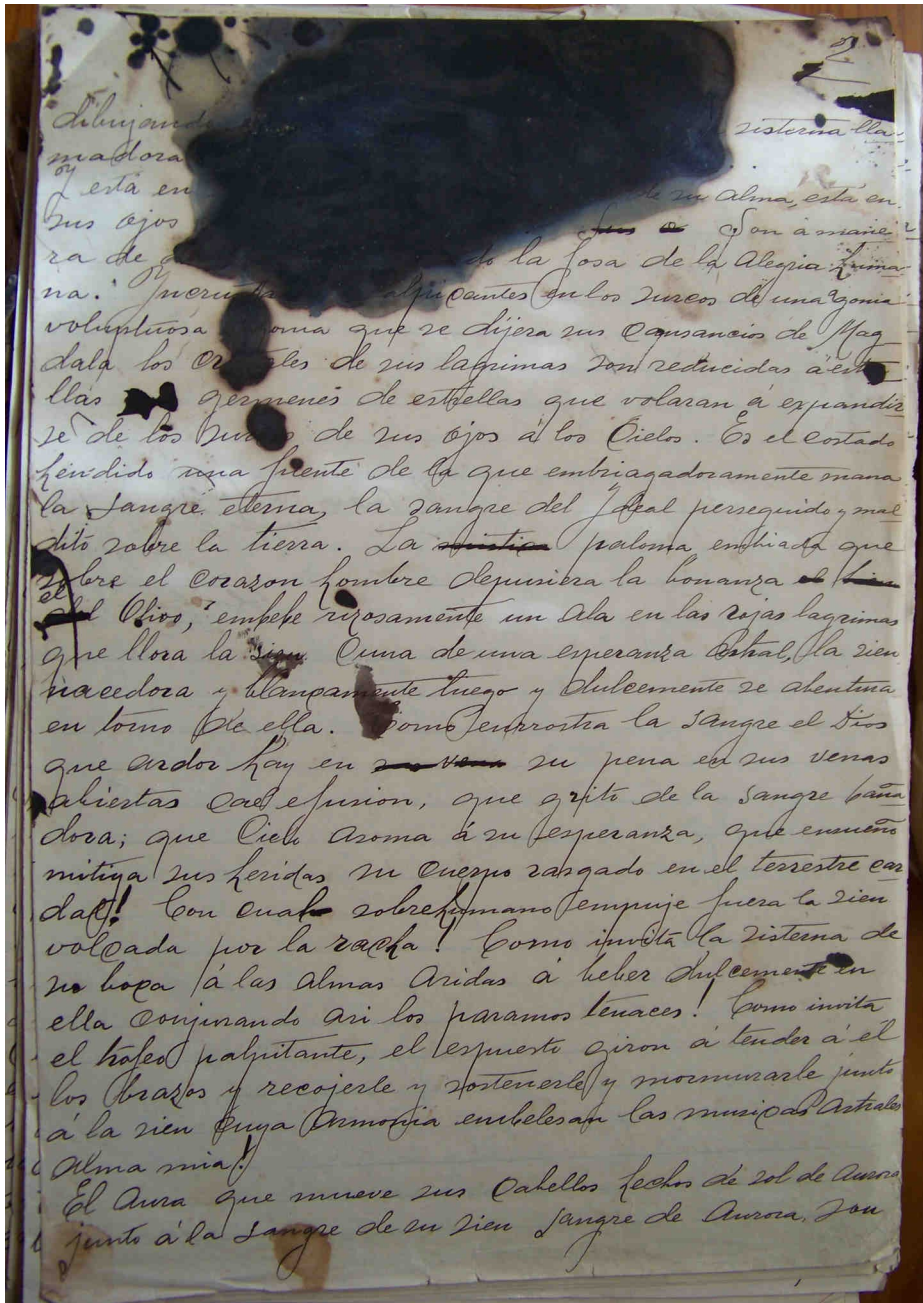 dibujando sisterna lla-
madora
y está en de su alma, está en
sus ojos Son á mane
ra de do la fosa de la Alegria huma
na. en los surcos de una agonia
voluptuosa que se dijera sus cansancios de Mag
dala los de sus lagrimas son reducidas á est
llas germenes de estrellas que volaran á expandir
se de los de sus ojos á los Cielos. Es el costado
hendido una fuente de la que embriagadoramente mana
la sangre eterna, la sangre del Ideal perseguido y mal
dito sobre la tierra. La mistica paloma embiada que
sobre el corazon hombre depusiera la bonanza
el Olivo, embebe rizosamente un ala en las rojas lagrimas
que llora la sien. Cuna de una esperanza Astral, la sien
nacedora y blancamente luego y dulcemente se abentura
en torno de ella. Como enrrostra la sangre el Dios
que ardor hay en su pena en sus venas
abiertas efusion, que grito de la sangre baña
dora; que Cielo asoma á su esperanza, que ensueño
mitiga sus heridas su cuerpo rasgado en el terrestre car
dal! Con cual sobrehumano empuje fuera la sien
volcada por la racha! Como invita la sisterna de
su boca á las almas aridas á beber dulcemente en
ella conjurando asi los paramos tenaces! Como invita
el trofeo palpitante, el espuesto giron á tender á el
los brazos y recojerle y sostenerle y mormurarle junto
á la sien cuya armonia embelesan las musicas Astrales
Alma mia!
El Aura que mueve sus Cabellos hechos de sol de Aurora
junto á la sangre de su sien sangre de Aurora, son